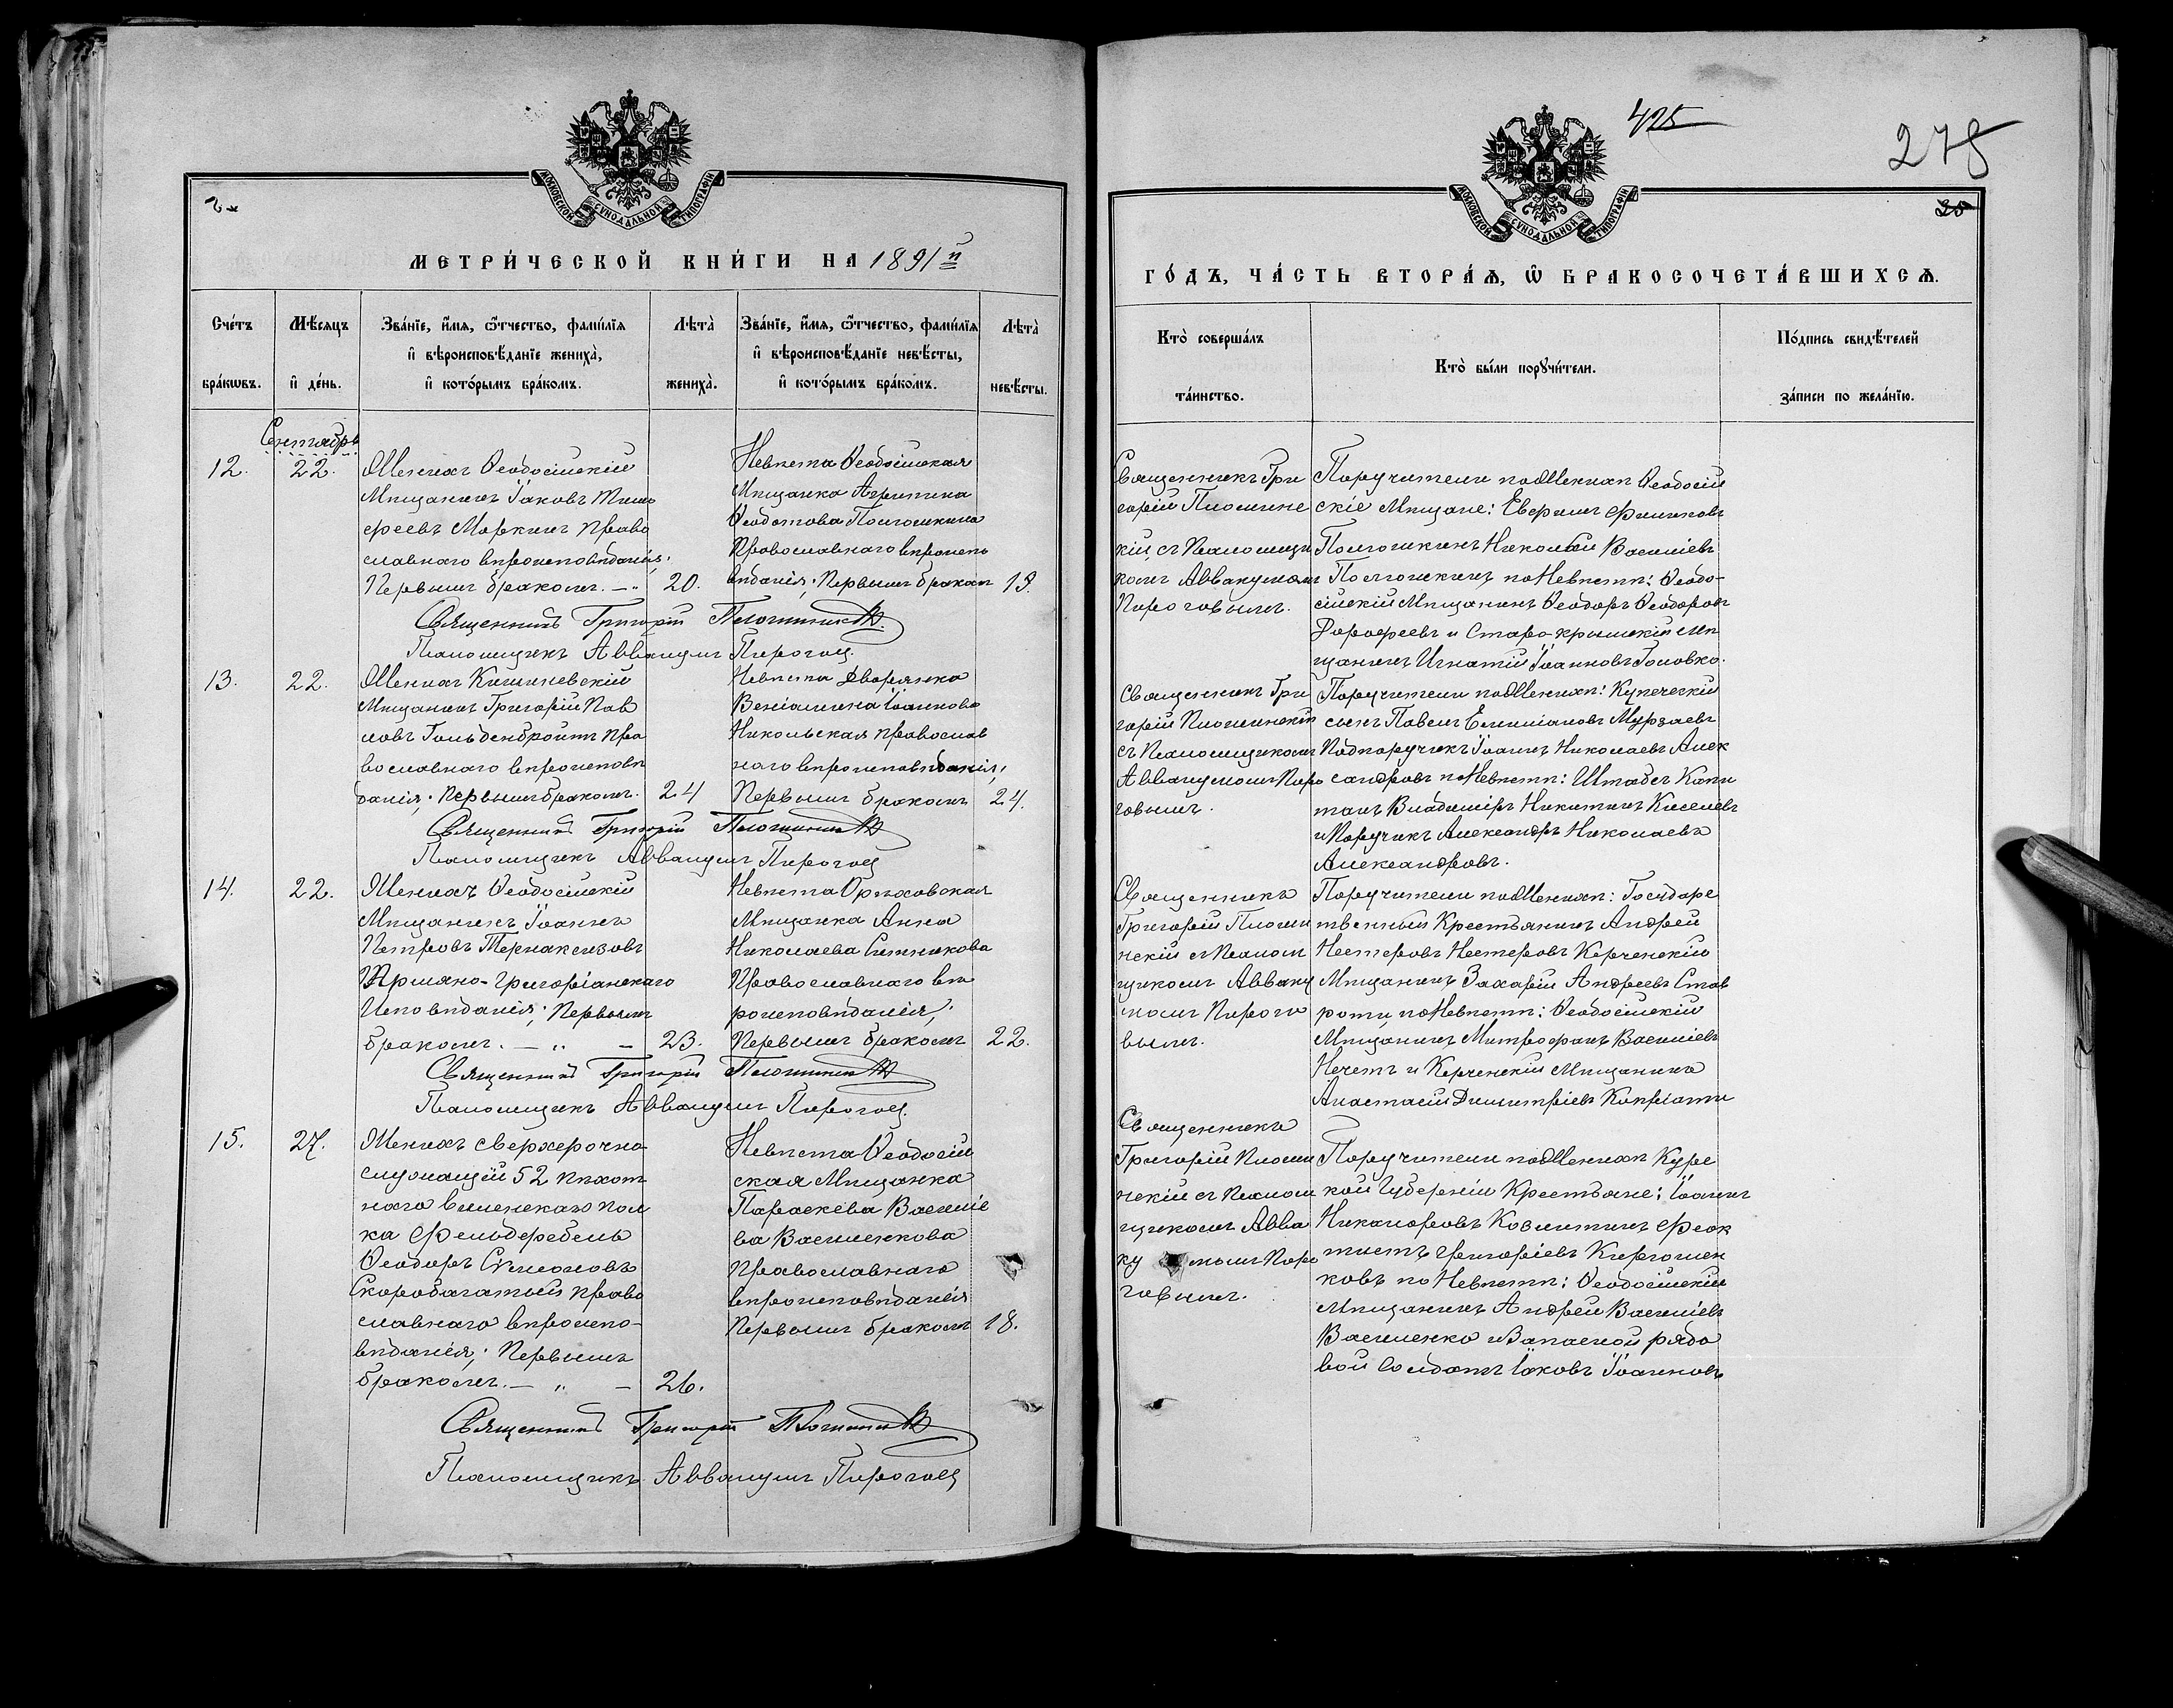 МОСКОВСКОЙ СѴНОДАЛЬНОЙ ТИПОГРАФІИ
МЕТРИ́ЧЕСКОЙ КНИ́ГИ НА 1891й
Сче́тъ бра́кωвъ.
Мѣ́сяцъ и҆ де́нь.
Зва́нїе, и҆́мя, ѻ҆́тчество, фами́лїя
и҆ вѣроисповѣ́данїе жениха̀,
и҆ кото́рымъ бра́комъ.
Лѣта̀ жениха̀.
Зва́нїе, и҆́мя, ѻ҆́тчество, фами́лїя
и҆ вѣроисповѣ́данїе невѣ́сты,
и҆ кото́рымъ бра́комъ.
Лѣта̀ невѣ́сты.
Сентябрь
12.
22.
Женихъ Ѳеодосійскій
Мѣщанинъ Іаковъ Тимо
феевъ Моркинъ право
славнаго вѣроисповѣданія;
Первымъ бракомъ. — "
20.
Невѣста Ѳеодосійская
Мѣщанка Агрипина
Ѳеодотова
Православнаго вѣроиспо
вѣданія; Первымъ бракомъ
19.
Священникъ Григорій
Псаломщикъ Аввакумъ Пироговъ
13.
22.
Женихъ Кишиневскій
Мѣщанинъ Григорій Пав
ловъ Гольденбройтъ Пра
вославнаго вѣроисповѣ
данія; Первымъ бракомъ.
24
Невѣста Дворянка
Веніамина Іоаннова
Никольская православ
наго вѣроисповѣданія;
Первымъ бракомъ
24.
Священникъ Григорій
Псаломщикъ Аввакумъ Пироговъ
14.
22.
Женихъ Ѳеодосійскій
Мѣщанинъ Іоаннъ
Петровъ Термаксизовъ
Армяно-Григоріанскаго
Исповѣданія; Первымъ
бракомъ. — " —
23.
Невѣста Орѣховская
Мѣщанка Анна
Николаева Ситникова
Православнаго вѣ
роисповѣданія;
Первымъ бракомъ
22.
Священникъ Григорій
Псаломщикъ Аввакумъ Пироговъ
15.
27.
Женихъ сверхсрочно
служащій 52 пѣхот
наго виленскаго пол
ка фельдфебель
Ѳеодоръ Симоновъ
Скоробагатый право
славнаго вѣроиспо-
вѣданія; Первымъ
бракомъ. — " —
26.
Невѣста Ѳеодосій
ская Мѣщанка
Параскева Василіе
ва Василенкова
Православнаго
вѣроисповѣданія
Первымъ бракомъ
18.
Священникъ Григорій
Псаломщикъ Аввакумъ Пироговъ
425
278
25
МОСКОВСКОЙ СѴНОДАЛЬНОЙ ТИПОГРАФІИ
ГО́ДЪ, ЧА́СТЬ ВТОРА́Ѧ, Ѡ҆ БРАКОСОЧЕТА́ВШИХСѦ.
Кто̀ соверша́лъ та́инство.
Кто̀ бы́ли порꙋчи́тели.
По́дпись свидѣ́телей за́писи по жела́нїю.
Священникъ Гри
горій
кій, съ Псаломщи
комъ Аввакумомъ
Пироговымъ.
Поручители по Женихѣ Ѳеодосій
скіе Мѣщане:
Николай Василіевъ
по Невѣстѣ: Ѳеодо-
сійскій Мѣщанинъ Ѳеодоръ Ѳеодоровъ
Дорофеевъ и Старо-крымскій мѣ
щанинъ Игнатій Іоанновъ Головко.
Священникъ Гри
горій
съ Псаломщикомъ
Аввакумомъ Пиро
говымъ.
Поручители по Женихѣ: Купеческій
сынъ Павелъ Емилиановъ Мурзаевъ
Подпоручикъ Іоаннъ Николаевъ Алек
сандровъ по Невѣстѣ: Штабсъ Капи
танъ Владиміръ Никитинъ Киселевъ
и Поручикъ Александръ Николаевъ
Александровъ.
Священникъ
Григорій
нскій съ Псалом
щикомъ Авваку
момъ Пирого
вымъ.
Поручители по Женихѣ: Государс
твенный Крестьянинъ Андрей
Нестеровъ Нестеровъ Керченскій
Мѣщанинъ Захарій Андреевъ Став
роти, по Невѣстѣ: Ѳеодосійскій
Мѣщанинъ Митрофанъ Василіевъ
Нечетъ и Керченскій Мѣщанинъ
Анастасій Димитріевъ
Священникъ
Григорій
нскій съ Псалом
щикомъ Авва
ку момъ Пиро
говымъ.
Поручители по Женихѣ Курс
кой Губерніи Крестьяне: Іоаннъ
Никаноровъ Феок
тистъ Григоріевъ
ковъ по Невѣстѣ: Ѳеодосійскій
Мѣщанинъ Андрей Василіевъ
Василенко и Запасной рядо
вой Солдатъ Іаковъ Іоанновъ